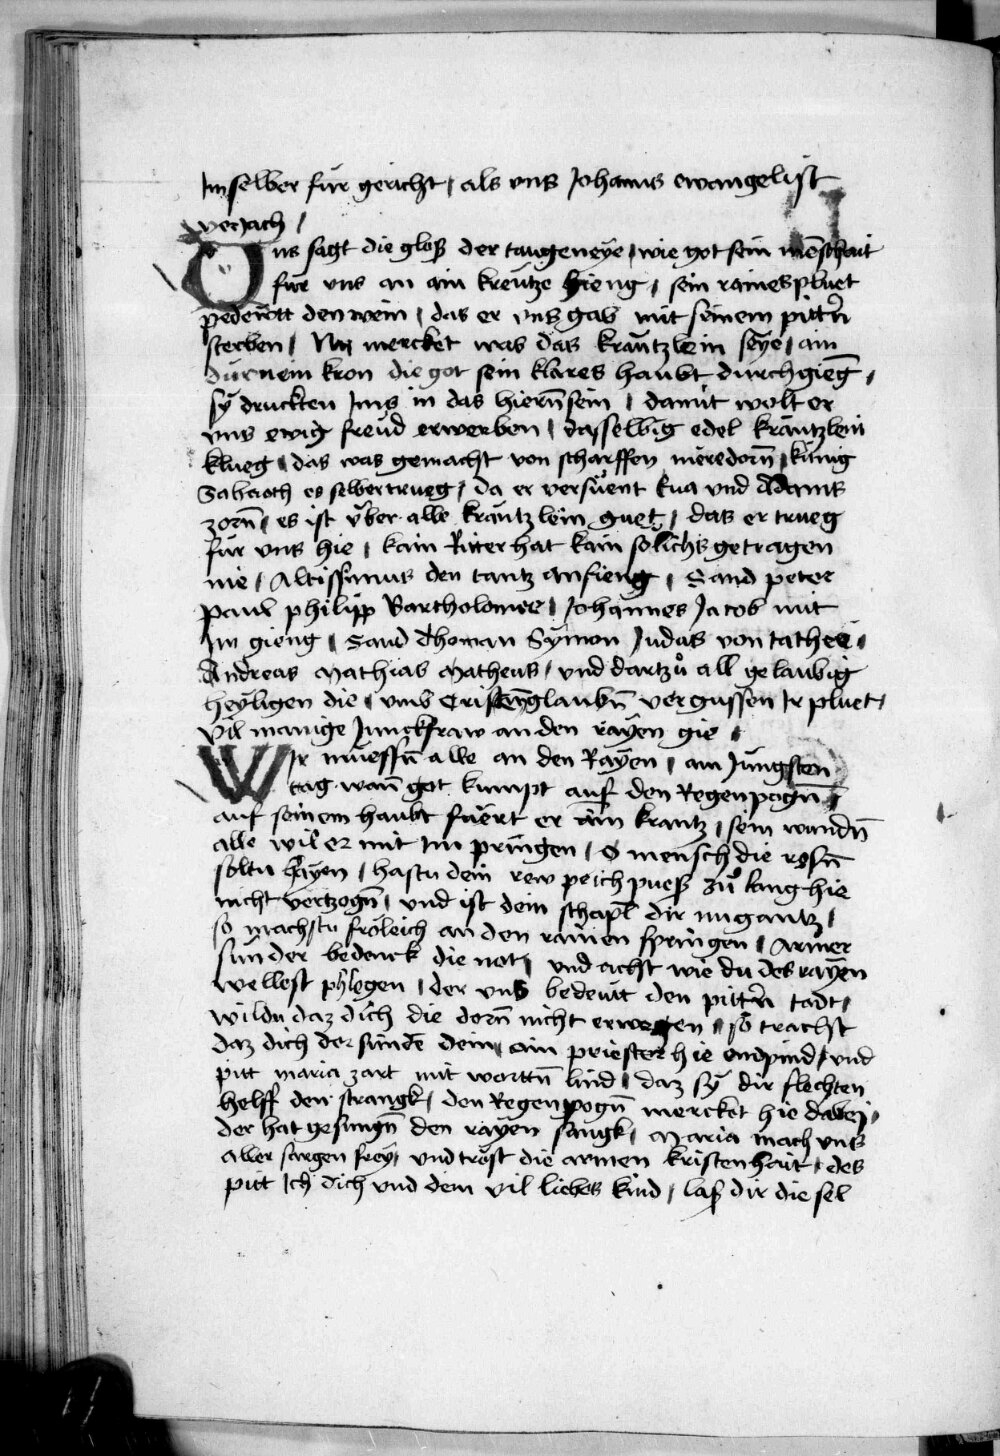 Im selber für gericht / als vns Johanns ewangelist
veriach /
Vns sagt die gloß der taugeneye / wie got sein mēschait
für vns an ain kreutze hieng / sein raines pluet
pedeutt den wein / das er vns gab mit seinem pittrn̄
sterben / Nu mercket was das kräntzlein seye / ain
durnein kron die got sein klares haubt durchgieng /
sÿ druckten Ims in das hierrn̄ sein / damit wolt er
vns ewig freud erwerben / dasselbig edel kräntzlein
klueg / das was gemacht von scharffen meredorn̄ / künig
Sabaoth es selber trueg / da er versüent Eua vnd Adams
zorn̄ / es ist über alle kräntzlein guet / das er trueg
für vns hie / kain Ritter hat kain solichs getragen
nie / Altissimus den tantz anfieng / Sand peter
paul philipp Bartholomee / Johannes Jacob mit
Im gieng / Sand Thoman Symon Judas von tathee /
Andreas Mathias Matheus / vnd dartzů all gelaubig
heyligen die / vmb Cristen̄glaubn̄ vergussen Ir pluet /
vil manige Junckfraw an den räyen gie /
WIr müessn̄ alle an den Räyen / am Jungsten
tag wan̄ got kumpt auf den Regenpogn̄ /
auf seinem haubt füert er ain krantz / sein wundn̄
alle wil er mit im pringen / O mensch die rosn̄
soltu hayen / hastu dein rew peich pueß zů lang hie
nicht vertzogn̄ / vnd ist dein schapl dir nu gantz /
so machstu fröleich an den rainen springen / Armer
sünder bedenck die not / vnd acht wie du des räyen
wellest phlegen / der vns bedeutt den pittrn̄ todt /
wildu daz dich die dorn̄ nicht erwegen / so tracht
daz dich der sünde dein / ain priester hie enpind / vnd
pitt maria zart mit worttn̄ lind / daz sÿ dir flechten
helff den strangk / den Regenpogn̄ mercket hie dabej /
der hat gesungn̄ den räyen sangk / Maria mach vns
aller sargen frey / vnd tröst die armen kristenhait / des
pitt Ich dich vnd dein vil liebes kind / laß dir die sel